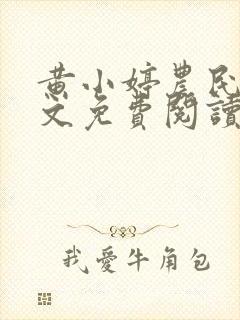 黄小婷農民
文免費閱讀
我愛牛角包